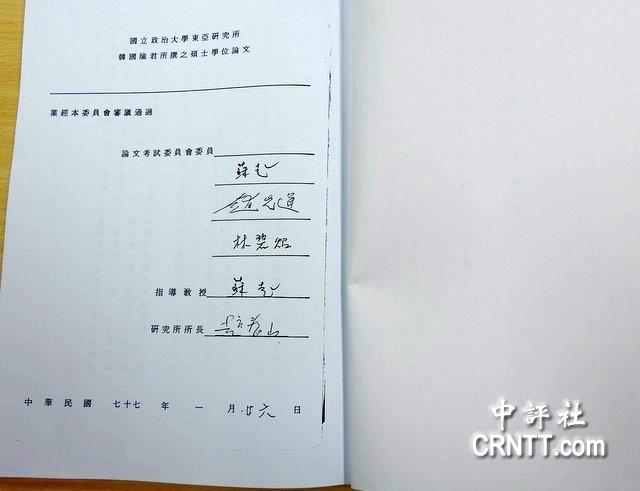 國立政治大學東亞研究所
韓國瑜君所撰之碩士學位論文
業經本委員會審議通過
論文考試委員會委員
蘇起
林碧炤
指導教授 蘇起
研究所所長
中華民國 七十七 年 一 月 廿六 日
中評社
CRNTT.com